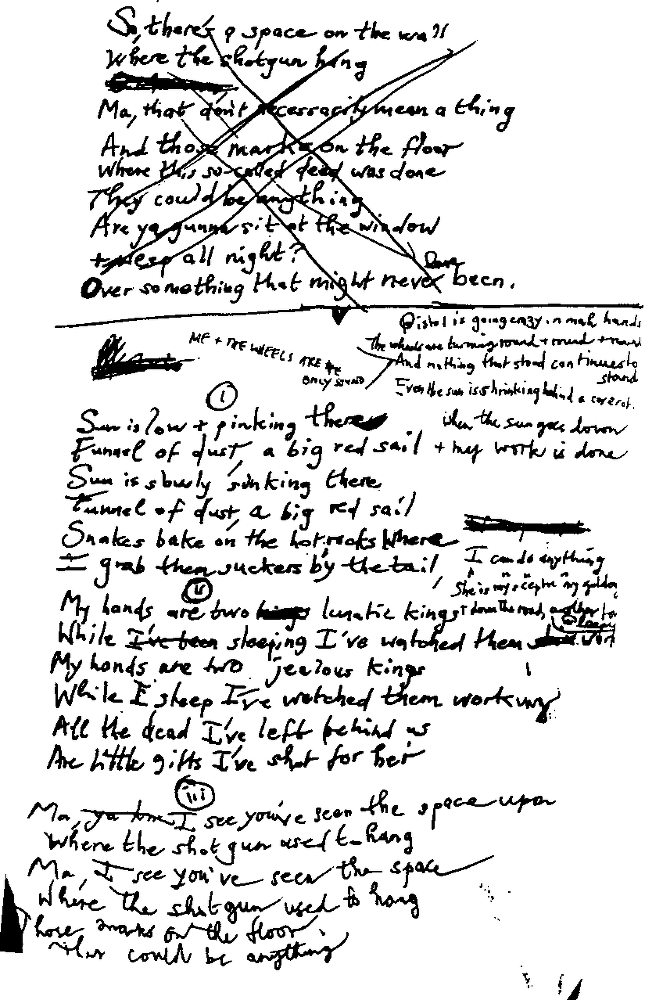 So, there's a space on the wall
Where the shotgun hang
Ma, that don't necessarily mean a thing
And those marks on the floor
Where this so-called dead was done
They could be anything
Are ya gunna sit at the window
+ weep all night?
have
Over something that might never been.
Pistol is going crazy in mah hands
The wheels are turning round + round + round
And nothing that stood continues to
stand
Even the sun is shrinking behind a
when the sun goes down
+ my work is done
ME + THE WHEELS ARE THE
ONLY SOUND
i
Sun is low + pinking there
Funnel of dust, a big red sail
Sun is slowly sinking there
Funnel of dust, a big red sail
Snakes bake on the hot rocks where
I grab them suckers by the tail
I can do anything
She is my sceptre my golden
+ down the road, another
ii
My hands are two kings lunatic kings
While I've been sleeping I've watched them work
My hands are two jealous kings
While I sleep I've watched them working
All the dead I've left behind us
Are little gifts I've shot for her
iii
Ma, ya know I see you've seen the space upon
Where the shotgun used to hang
Ma, I see you've seen the space
Where the shotgun used to hang
Those marks on the floor
They could be anything